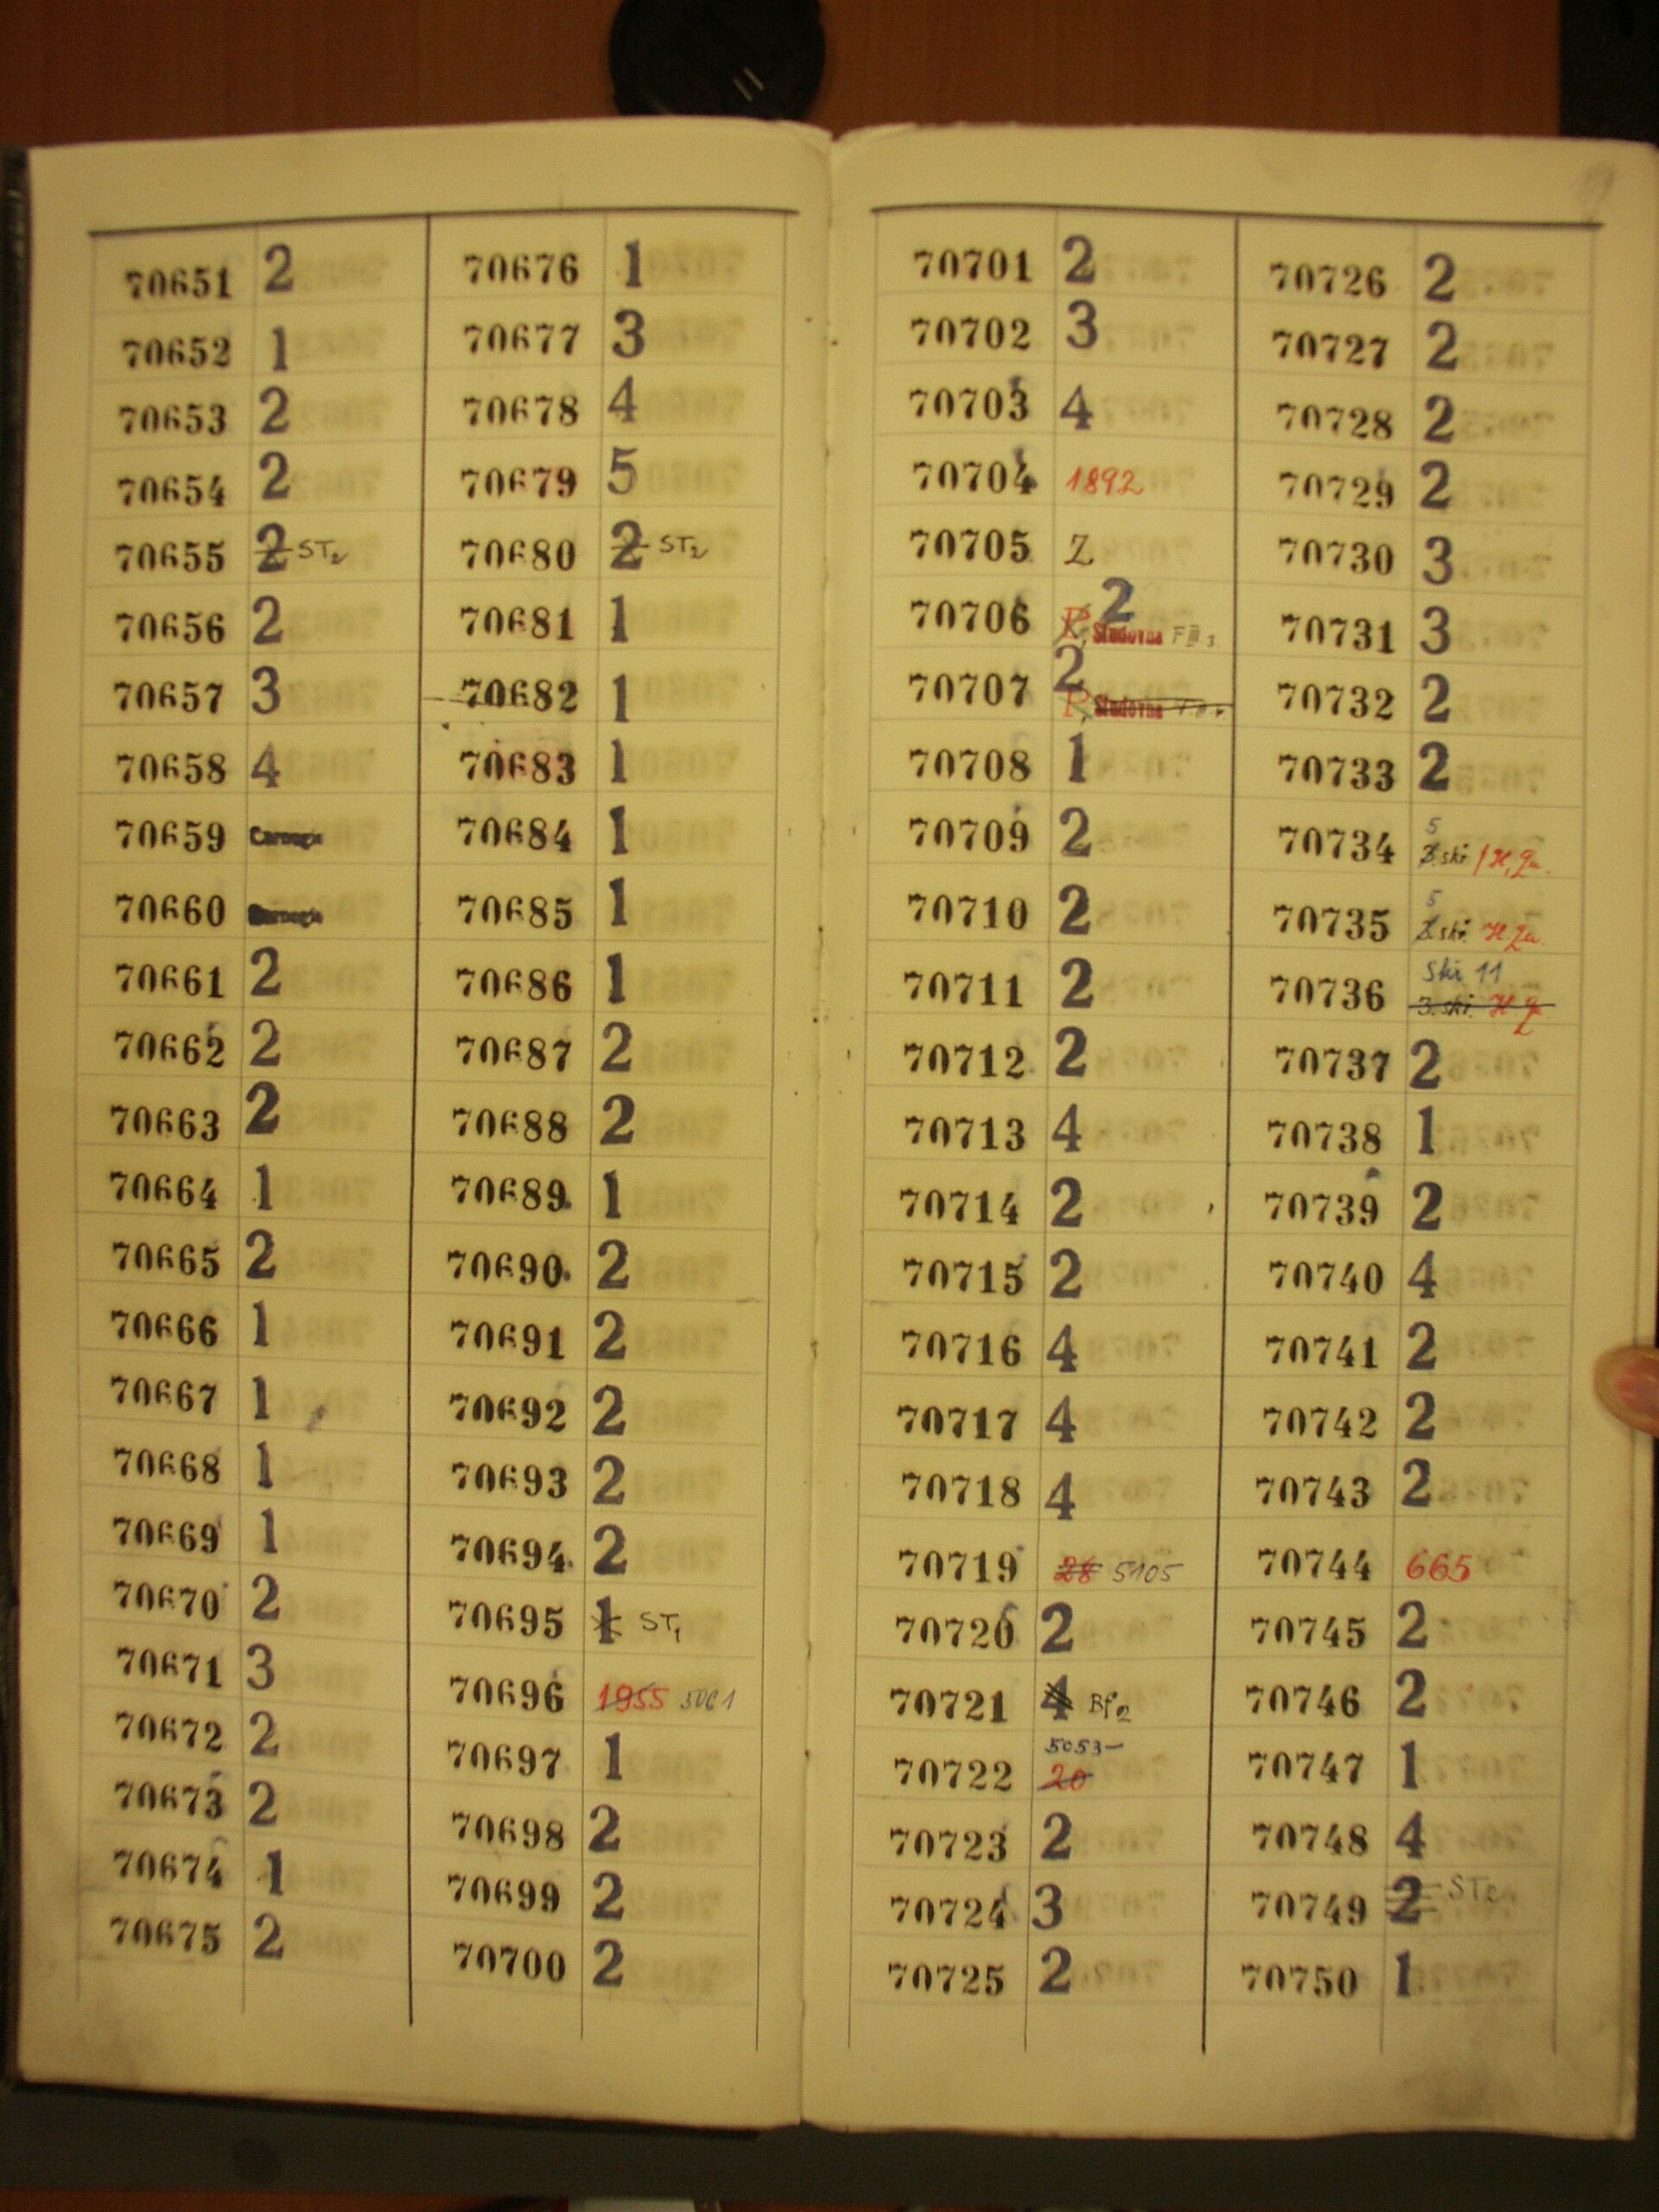 70651 2
70652 1
70653 2
70654 2
70655 2 ST2
70656 2
70657 3
70658 4
70659
70660
70661 2
70662 2
70663 2
70664 1
70665 2
70666 1
70667 1
70668 1
70669 1
70670 2
70671 3
70672 2
70673 2
70674 1
70675 2
70676 1
70677 3
70678 4
70679 5
70680 2 ST2
70681 1
70682 1
70683 1
70684 1
70685 1
70686 1
70687 2
70688 2
70689 1
70690 2
70691 2
70692 2
70693 2
70694 2
70695 1 ST1
70696 1955 5061
70697 1
70698 2
70699 2
70700 2
70701 2
70702 3
70703 4
70704 1892
70705 Z
70706 2
P, Studovna F III 3
70707 2
P, Studovna
70708 1
70709 2
70710 2
70711 2
70712 2
70713 4
70714 2
70715 2
70716 4
70717 4
70718 4
70719 28 5105
70720 2
70721 4 Bf2
5053-
70722 20
70723 2
70724 3
70725 2
70726 2
70727 2
70728 2
70729 2
70730 3
70731 3
70732 2
70733 2
5
70734 skř
5
70735 skř.
Skř 11
70736 3. skř.
70737 2
70738 1
70739 2
70740 4
70741 2
70742 2
70743 2
70744 665
70745 2
70746 2
70747 1
70748 4
70749 2 ST2
70750 1